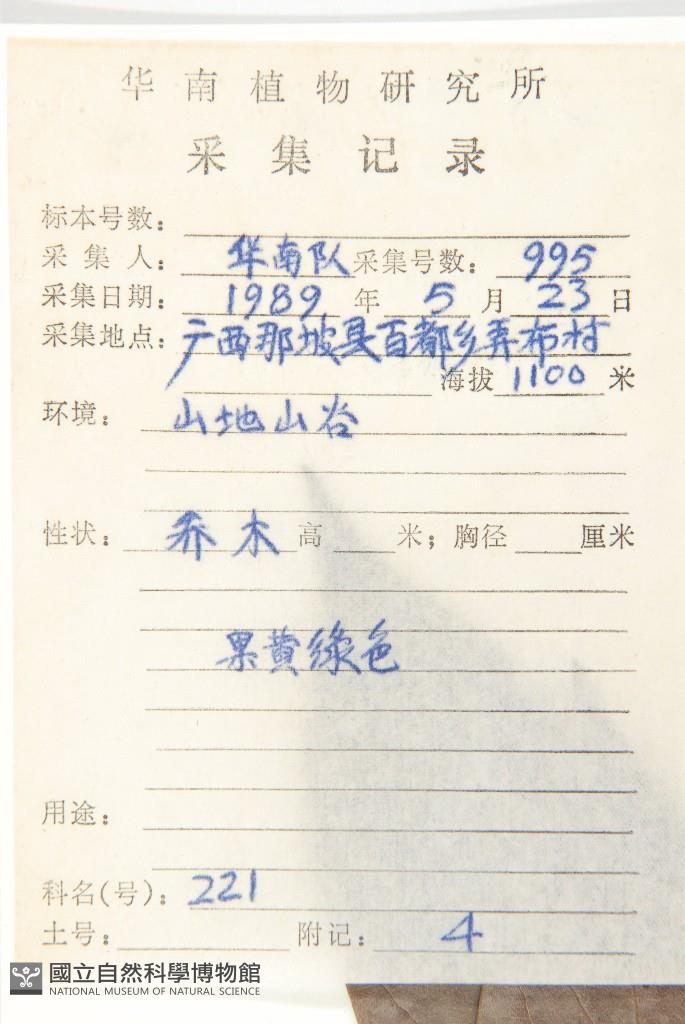 华南植物研究所
采集记录
标本号数：
采集人：华南队 采集号数：995
采集日期：1989年5月23日
采集地点：广西那坡县百都乡弄布村
海拔1100米
环境：山地山谷
性状：乔木 高 米；胸径 厘米
果黄綠色
用途：
科名(号)：221
土号： 附记：4
國立自然科學博物館
NATIONAL MUSEUM OF NATURAL SCIENCE